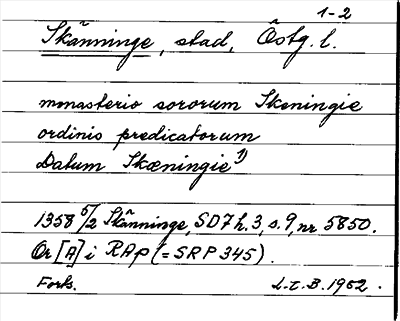 1-2
Skänninge, stad, Östg. l.
monasterio sororum Skeningie
ordinis predicatorum
Datum Skæningie 1)
1358 5/2 Skänninge, SD7 h.3, s.9, nr 5850.
Or [A] i RAp (= SRP 345).
Forks. L-E.B. 1962.